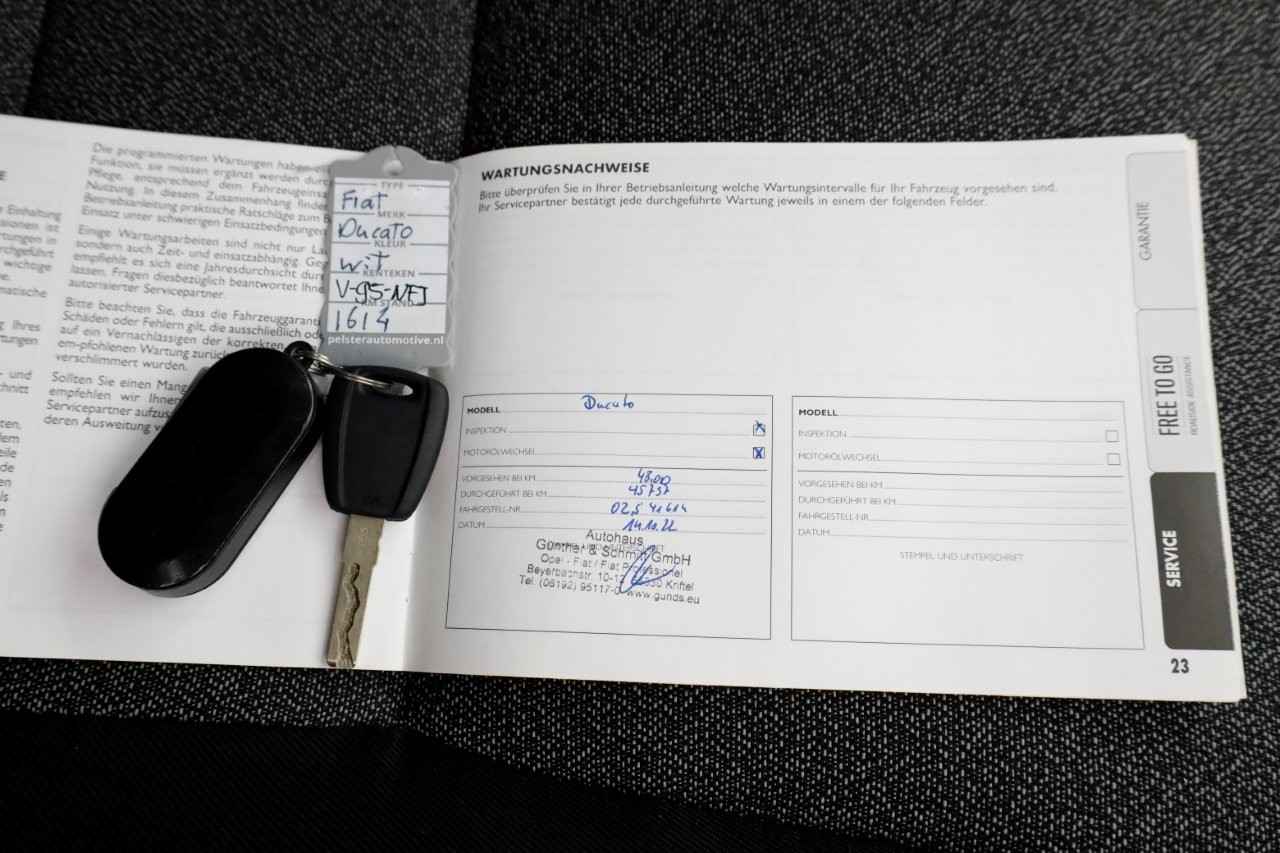 Die programmierten Wartungen
Funktion, sie müssen ergänzt werden
Pflege, entsprechend dem
Nutzung. In diesem Zusammenhang
Betriebsanleitung praktische Ratschläge zum
Einsatz unter schwierigen Einsatzbedingungen
Einige Wartungsarbeiten sind nicht nur
sondern auch Zeit- und einsatzabhängig.
empfiehlt es sich eine Jahresdurchsicht
lassen. Fragen diesbezüglich beantwortet
autorisierter Servicepartner.
Bitte beachten Sie, dass die
Schäden oder Fehlern gilt, die ausschließlich
auf ein Vernachlässigen der korrekten
em-pfohlenen Wartung
verschlimmert wurden.
Sollten Sie einen
empfehlen wir
Servicepartner
deren Ausweitung
Einhaltung
ist
in
wichtige
Ihres
und
TYPE
Fiat
MERK
Ducato
KLEUR
wit
KENTEKEN
V-95-NFJ
KM STAND
1614
pelsterautomotive.nl
WARTUNGSNACHWEISE
Bitte überprüfen Sie in Ihrer Betriebsanleitung welche Wartungsintervalle für Ihr Fahrzeug vorgesehen sind.
Ihr Servicepartner bestätigt jede durchgeführte Wartung jeweils in einem der folgenden Felder.
MODELL Ducato
INSPEKTION X
MOTORÖLWECHSEL X
VORGESEHEN BEI KM
DURCHGEFÜHRT BEI KM 45737
FAHRGESTELL-NR. 02,5 41614
DATUM 14.11.22
Autohaus
Günther & Schmitt GmbH
Opel - Fiat / Fiat Professional
Beyerbachstr. Kriftel
Tel. (06192) 95117-0 www.gunds.eu
MODELL
INSPEKTION
MOTORÖLWECHSEL
VORGESEHEN BEI KM
DURCHGEFÜHRT BEI KM
FAHRGESTELL-NR.
DATUM
STEMPEL UND UNTERSCHRIFT
GARANTIE
FREE TO GO
ROADSIDE ASSISTANCE
SERVICE
23